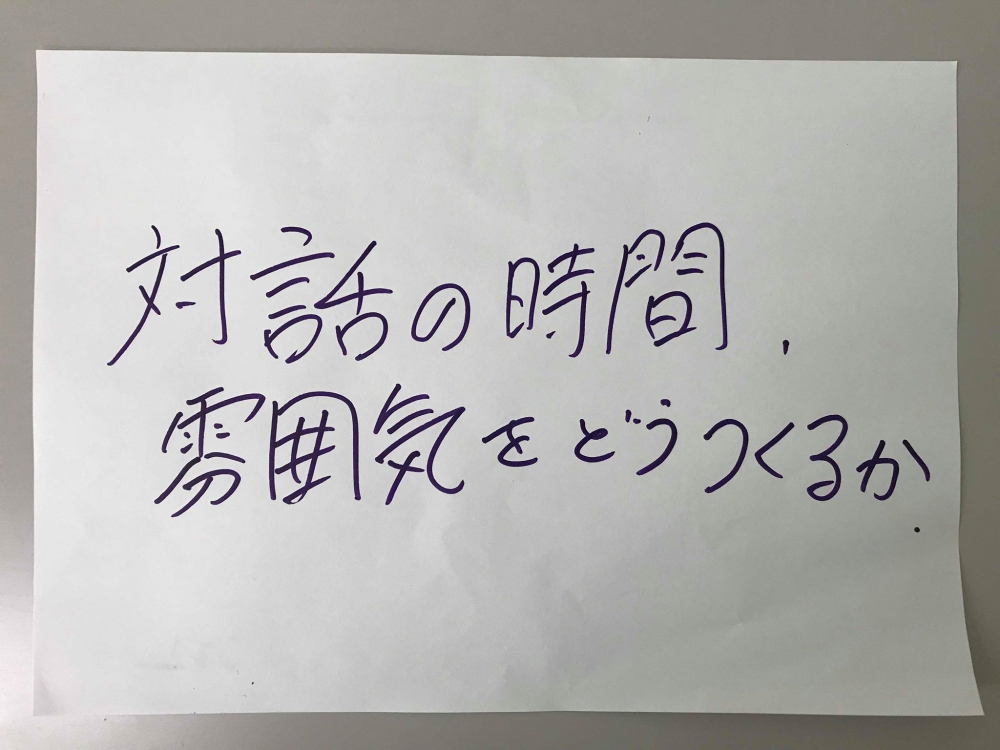 対話の時間、
雰囲気をどうつくるか.